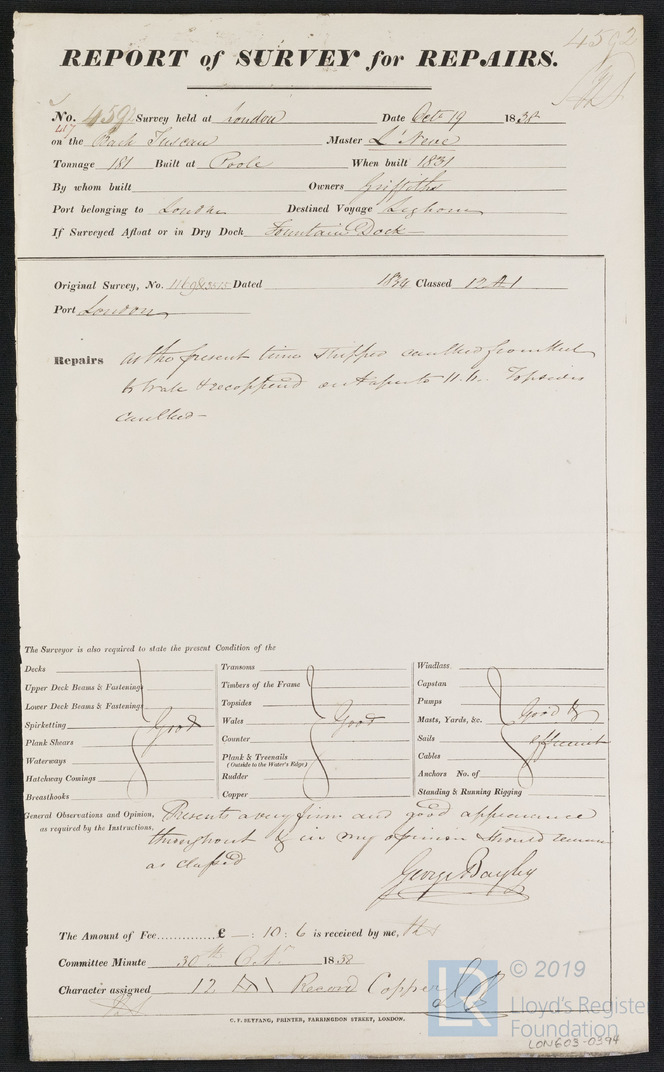 4592
REPORT of SURVEY for REPAIRS.
No. 4592 Survey held at London Date Octr 19 1838
417
on the Bark Tuscan Master L'Neve
Tonnage 181 Built at Poole When built 1831
By whom built Owners Griffiths
Port belonging to London Destined Voyage Leghorn
If Surveyed Afloat or in Dry Dock Fountain Dock
Original Survey, No. Dated 1834 Classed 12 A 1
Port London
Repairs at the present time Stripped caulked from Keel
to Wale & recoppered Topsides
caulked
The Surveyor is also required to state the present Condition of the
Decks
Upper Deck Beams & Fastenings
Lower Deck Beams & Fastenings
Spirketting Good
Plank Shears
Waterways
Hatchway Comings
Breasthooks
Transoms
Timbers of the Frame
Topsides
Wales Good
Counter
Plank & Treenails
(Outside to the Water's Edge)
Rudder
Copper
Windlass
Capstan
Pumps
Masts, Yards, &c. Good &
Sails efficient
Cables
Anchors No. of
Standing & Running Rigging
General Observations and Opinion, Presents a very firm and good appearance
as required by the Instructions, throughout & in my opinion should remain
as classed
George Bayley
The Amount of Fee.............. £ — : 10 : 6 is received by me,
Committee Minute 30th Octr 1838
Character assigned 12 A1 Record Copper
C. F. SEYFANG, PRINTER, FARRINGDON STREET, LONDON.
LR
© 2019
Lloyd's Register
Foundation
LON603-0394